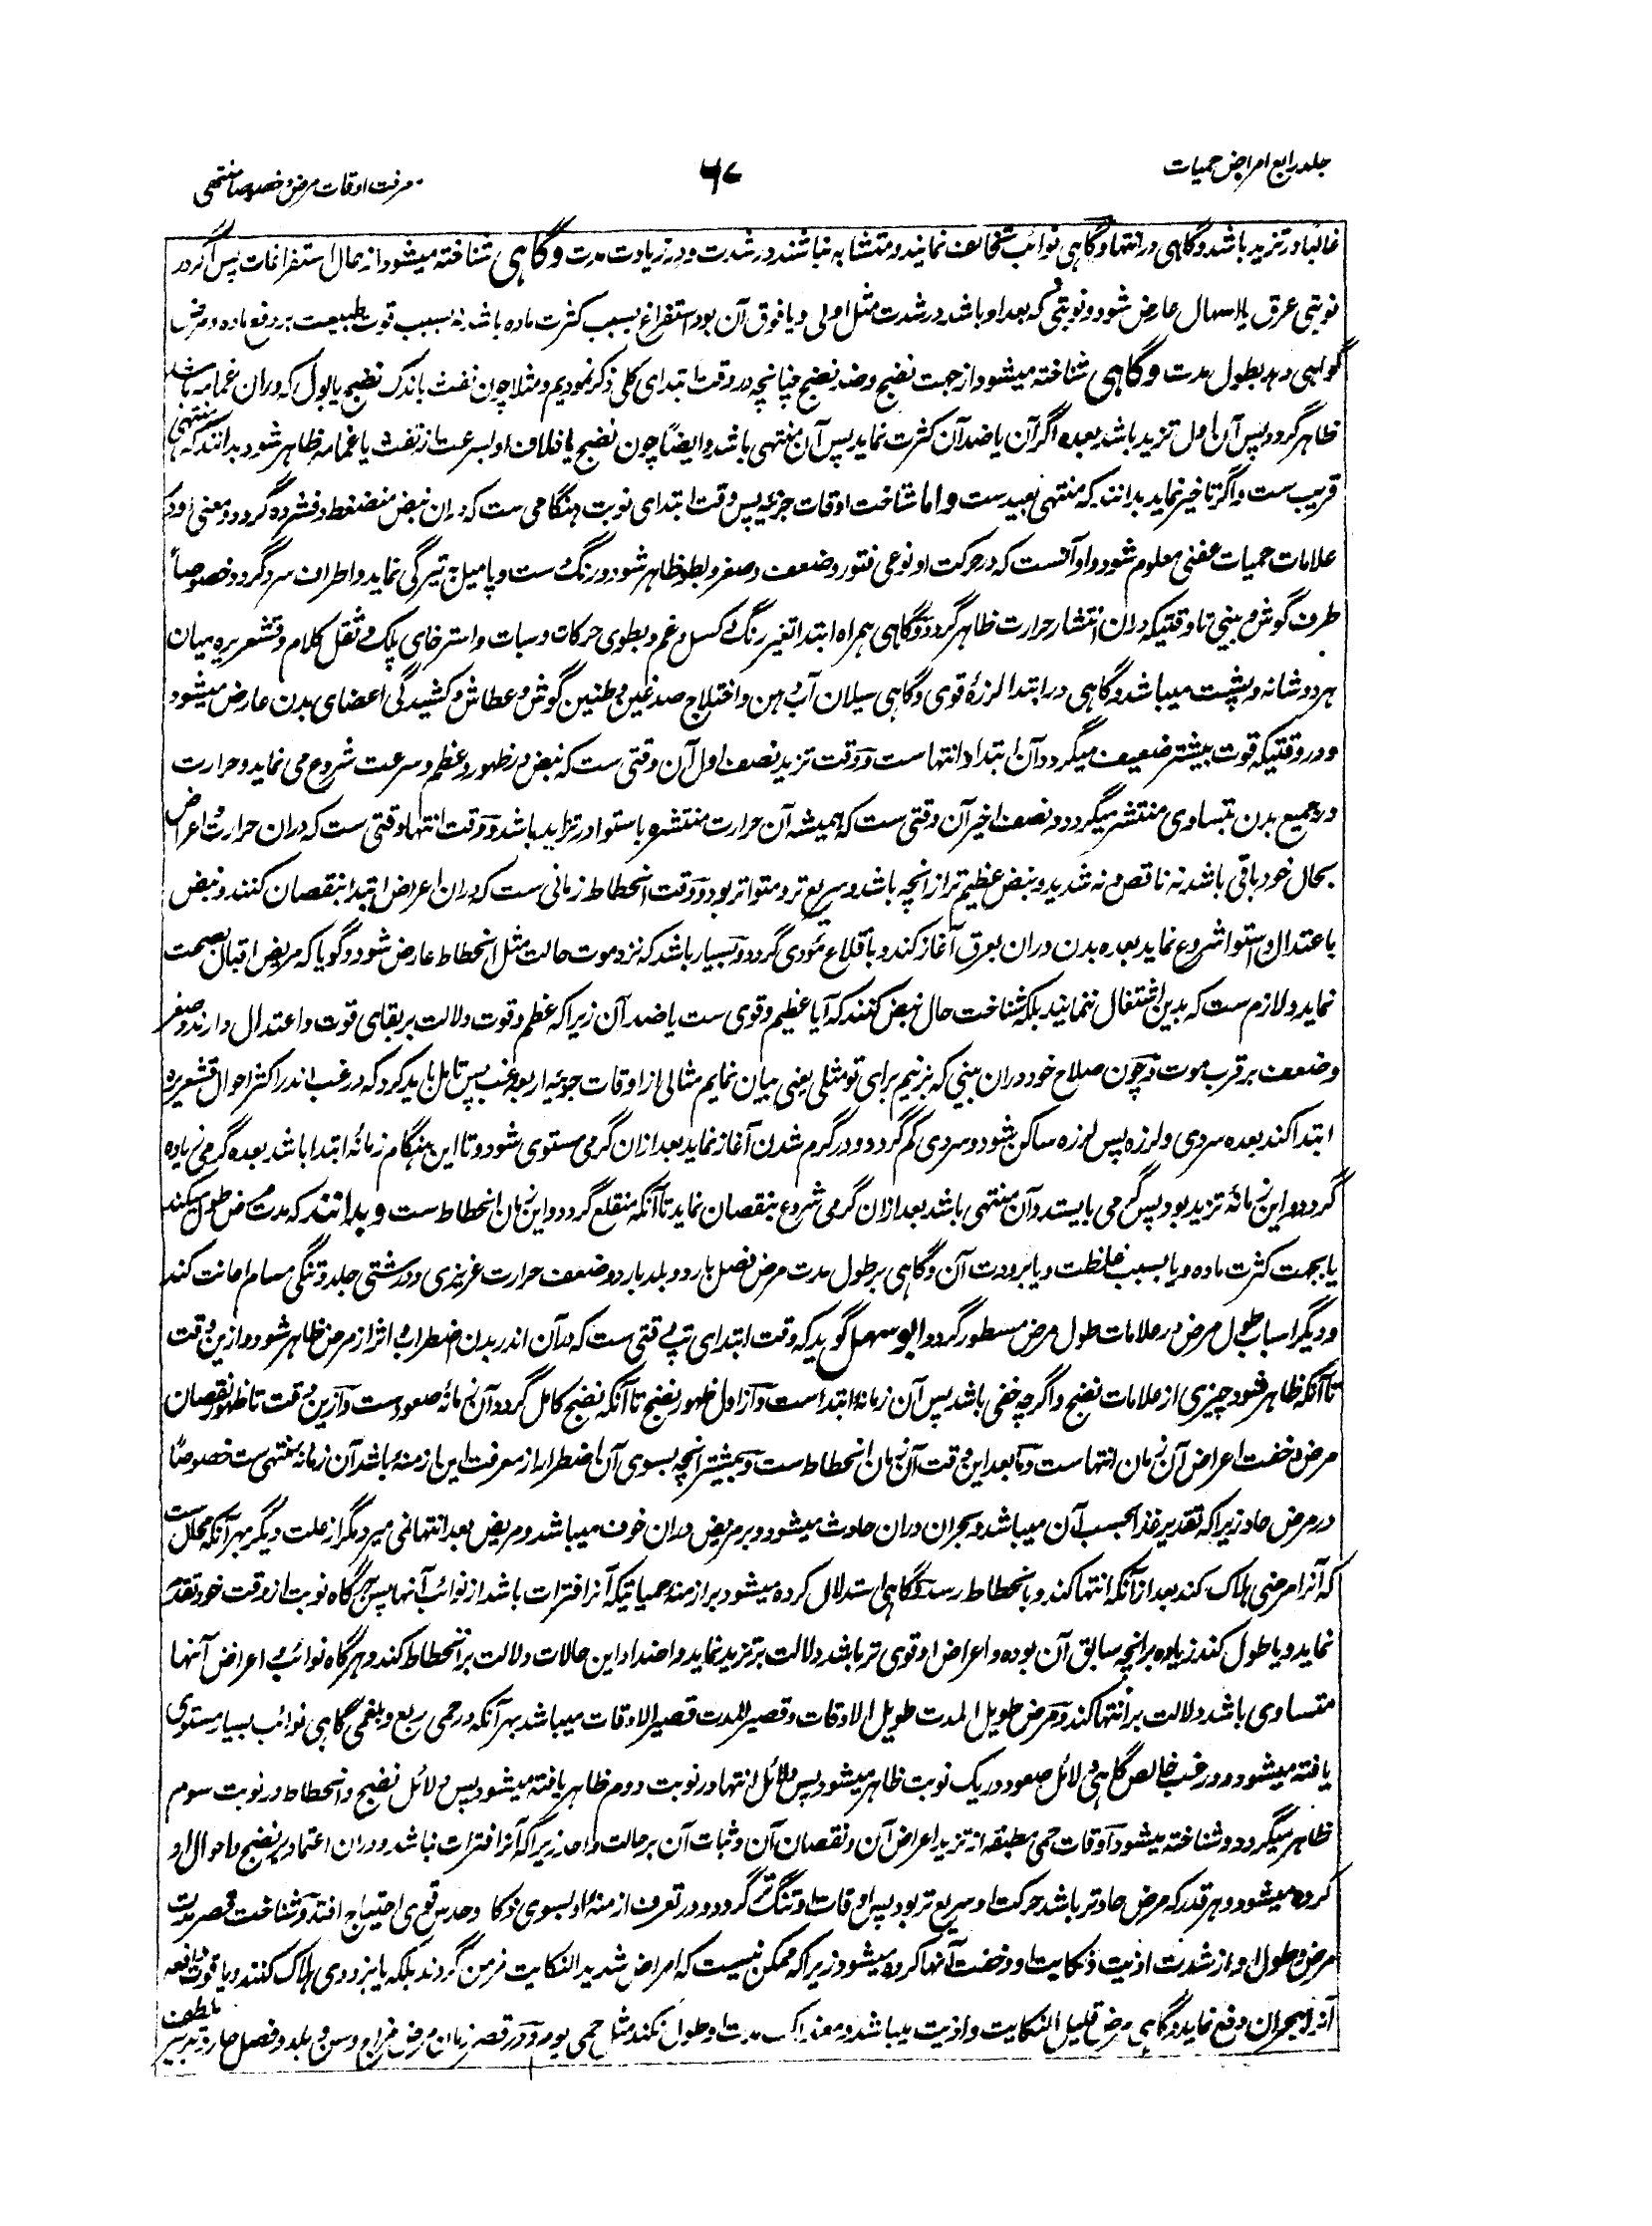 جلد رابع امراض حمیات
۶۷
معرفت اوقات مرض خصوصاً منتهی
غالباً در تزید باشد و گاهی در انتها و گاهی نوائب تخالف نمایند و متشابه نباشند در شدت و در زیادت مدت و گاهی شناخته میشود از حال استفراغات پس اگر در
نوبتی عرق یا اسهال عارض شود و نوبتی که بعد او باشد در شدت مثل اولی و یا فوق آن بود استفراغ بسبب کثرت ماده باشد نه بسبب قوت طبیعت بر دفع ماده و مرض
گواهی دهد بطول مدت و گاهی شناخته میشود از جهت نضج و ضد نضج چنانچه در وقت ابتدای کلی ذکر نمودیم و مثلا چون نفث باندک نضج یا بول که دران غمامه باشد
ظاهر گردد پس آن اول تزید باشد بعده اگر آن یا ضد آن کثرت نماید پس آن منتهی باشد و ایضاً چون نضج یا خلاف او بسرعت از نفث یا غمامه ظاهر شود بدانند که منتهی
قریب ست و اگر تاخیر نماید بدانند که منتهی بعید ست و اما شناخت اوقات جزئیه پس وقت ابتدای نوبت هنگامی ست که دران نبض منضغط و فشرده گردد و معنی او در
علامات حمیات عفنی معلوم شود و او آنست که در حرکت او نوعی فتور و ضعف و صغر و بطو ظاهر شود و رنگ دست و پا میل به تیرگی نماید و اطراف سرد گردد خصوصاً
طرف گوش و بینی تا وقتیکه دران انتشار حرارت ظاهر گردد و گاهی همراه ابتدا تغیر رنگ و کسل و غم و بطوی حرکات و سبات و استرخای پلک و ثقل کلام و قشعریره میان
هر دو شانه و پشت میباشد و گاهی در ابتدا لرزهٔ قوی و گاهی سیلان آب دهن و اختلاج صدغین و طنین گوش و عطاش و کشیدگی اعضای بدن عارض میشود
و در وقتیکه قوت بیشتر ضعیف میگردد آن ابتدا و انتها ست و وقت تزید نصف اول آن وقتی ست که نبض در ظهور و عظم و سرعت شروع می نماید و حرارت
در جمیع بدن بتساوی منتشر میگردد و نصف اخیر آن وقتی ست که همیشه آن حرارت منتشره باستوا در تزاید باشد و وقت انتها وقتی ست که دران حرارت و اعراض
بحال خود باقی باشد نه ناقص و نه شدید و نبض عظیم تر از انچه باشد و سریع تر و متواتر بود و وقت انحطاط زمانی ست که دران اعراض ابتدا بنقصان کنند و نبض
باعتدال و استوا شروع نماید بعده بدن دران بعرق آغاز کند و باقلاع مودی گردد و بسیار باشد که نزد موت حالت مثل انحطاط عارض شود و گویا که مریض اقبال بصحت
نماید و لازم ست که بدین اشتغال ننمایند بلکه شناخت حال نبض کنند که آیا عظیم و قوی ست یا ضد آن زیرا که عظم و قوت دلالت بر بقای قوت و اعتدال دارند و صغر
و ضعف بر قرب موت و چون صلاح خود دران بینی که بزنیم برای تو مثلی یعنی بیان نمایم مثالی از اوقات جزئیه اربعه غب پس تامل باید کرد که در غب اندر اکثر احوال قشعریره
ابتدا کند بعده سردی و لرزه پس لرزه ساکن شود و سردی کم گردد و در گرم شدن آغاز نماید بعد ازان گرمی مستوی شود و تا این هنگام زمانهٔ ابتدا باشد بعده گرمی زیاده
گردد و این زمانهٔ تزید بود پس گرمی بایستد و آن منتهی باشد بعد ازان گرمی شروع بنقصان نماید تا آنکه منقلع گردد و این زمان انحطاط ست و بدانند که مدت مرض طول میکند
یا بجهت کثرت ماده و یا بسبب غلظت و یا برودت آن و گاهی بر طول مدت مرض فصل بارد و بلد بارد و ضعف حرارت غریزی و درشتی جلد و تنگی مسام اعانت کند
و دیگر اسباب طول مرض در علامات طول مرض مسطور گردد ابو سهل گوید که وقت ابتدای تپ وقتی ست که دران اندر بدن اضطراب و اثر از مرض ظاهر شود و ازین وقت
تا آنکه ظاهر شود چیزی از علامات نضج و اگرچه خفی باشد پس آن زمانهٔ ابتداست و از اول ظهور نضج تا آنکه نضج کامل گردد آن زمانهٔ صعود ست و ازین وقت تا ظهور نقصان
مرض و خفت اعراض آن زمان انتها ست و ما بعد این وقت آن زمان انحطاط ست و بیشتر انچه بسوی آن اضطرار از معرفت این ازمنه باشد آن زمانهٔ منتهی ست خصوصاً
در مرض حاد زیرا که تقدیر غذا بحسب آن میباشد و بحران دران حادث میشود و بر مریض دران خوف میباشد و مریض بعد انتها نمی میرد مگر از علت دیگر بهر آنکه محال ست
که آنرا مرضی هلاک کند بعد از آنکه انتها کند و بانحطاط رسد و گاهی استدلال کرده میشود بر ازمنهٔ حمیاتیکه آنرا فترات باشد از نوائب آنها پس هرگاه نوبت از وقت خود تقدم
نماید و یا طول کند زیاده بر انچه سابق آن بوده و اعراض او قوی تر باشد دلالت بر تزید نماید و اضداد این حالات دلالت بر انحطاط کند و هرگاه نوائب و اعراض آنها
متساوی باشد دلالت بر انتها کند و مرض طویل المدت طویل الاوقات و قصیر المدت قصیر الاوقات میباشد بهر آنکه در حمی ربع و بلغمی گاهی نوائب بسیار مستوی
یافته میشود و در غب خالص گاهی دلائل صعود در یک نوبت ظاهر میشود پس دلائل انتها در نوبت دوم ظاهر یافته میشود پس دلائل نضج و انحطاط در نوبت سوم
ظاهر میگردد و شناخته میشود اوقات حمی مطبقه از تزید اعراض آن و نقصان آن و ثبات آن بر حالت واحد زیرا که آنرا فترات نباشد و دران اعتماد بر نضج و احوال او
کرده میشود و هر قدر که مرض حادتر باشد حرکت او سریع تر بود پس اوقات او تنگ تر گردد و در تعرف ازمنهٔ او بسوی ذکا و حدس قوی احتیاج افتد و شناخت قصر مدت
مرض و طول او از شدت اذیت و نکایت او و خفت آنها کرده میشود زیرا که ممکن نیست که امراض شدید النکایت مزمن گردند بلکه یا بزودی هلاک کنند و یا قوت دافعه
آنرا ببحران دفع نماید و گاهی مرض قلیل النکایت و اذیت میباشد و معذلک مدت او طول نکند مثل حمی یوم و در قصر زمان مرض مزاج و سن و بلد و فصل حار و تدبیر ملطف